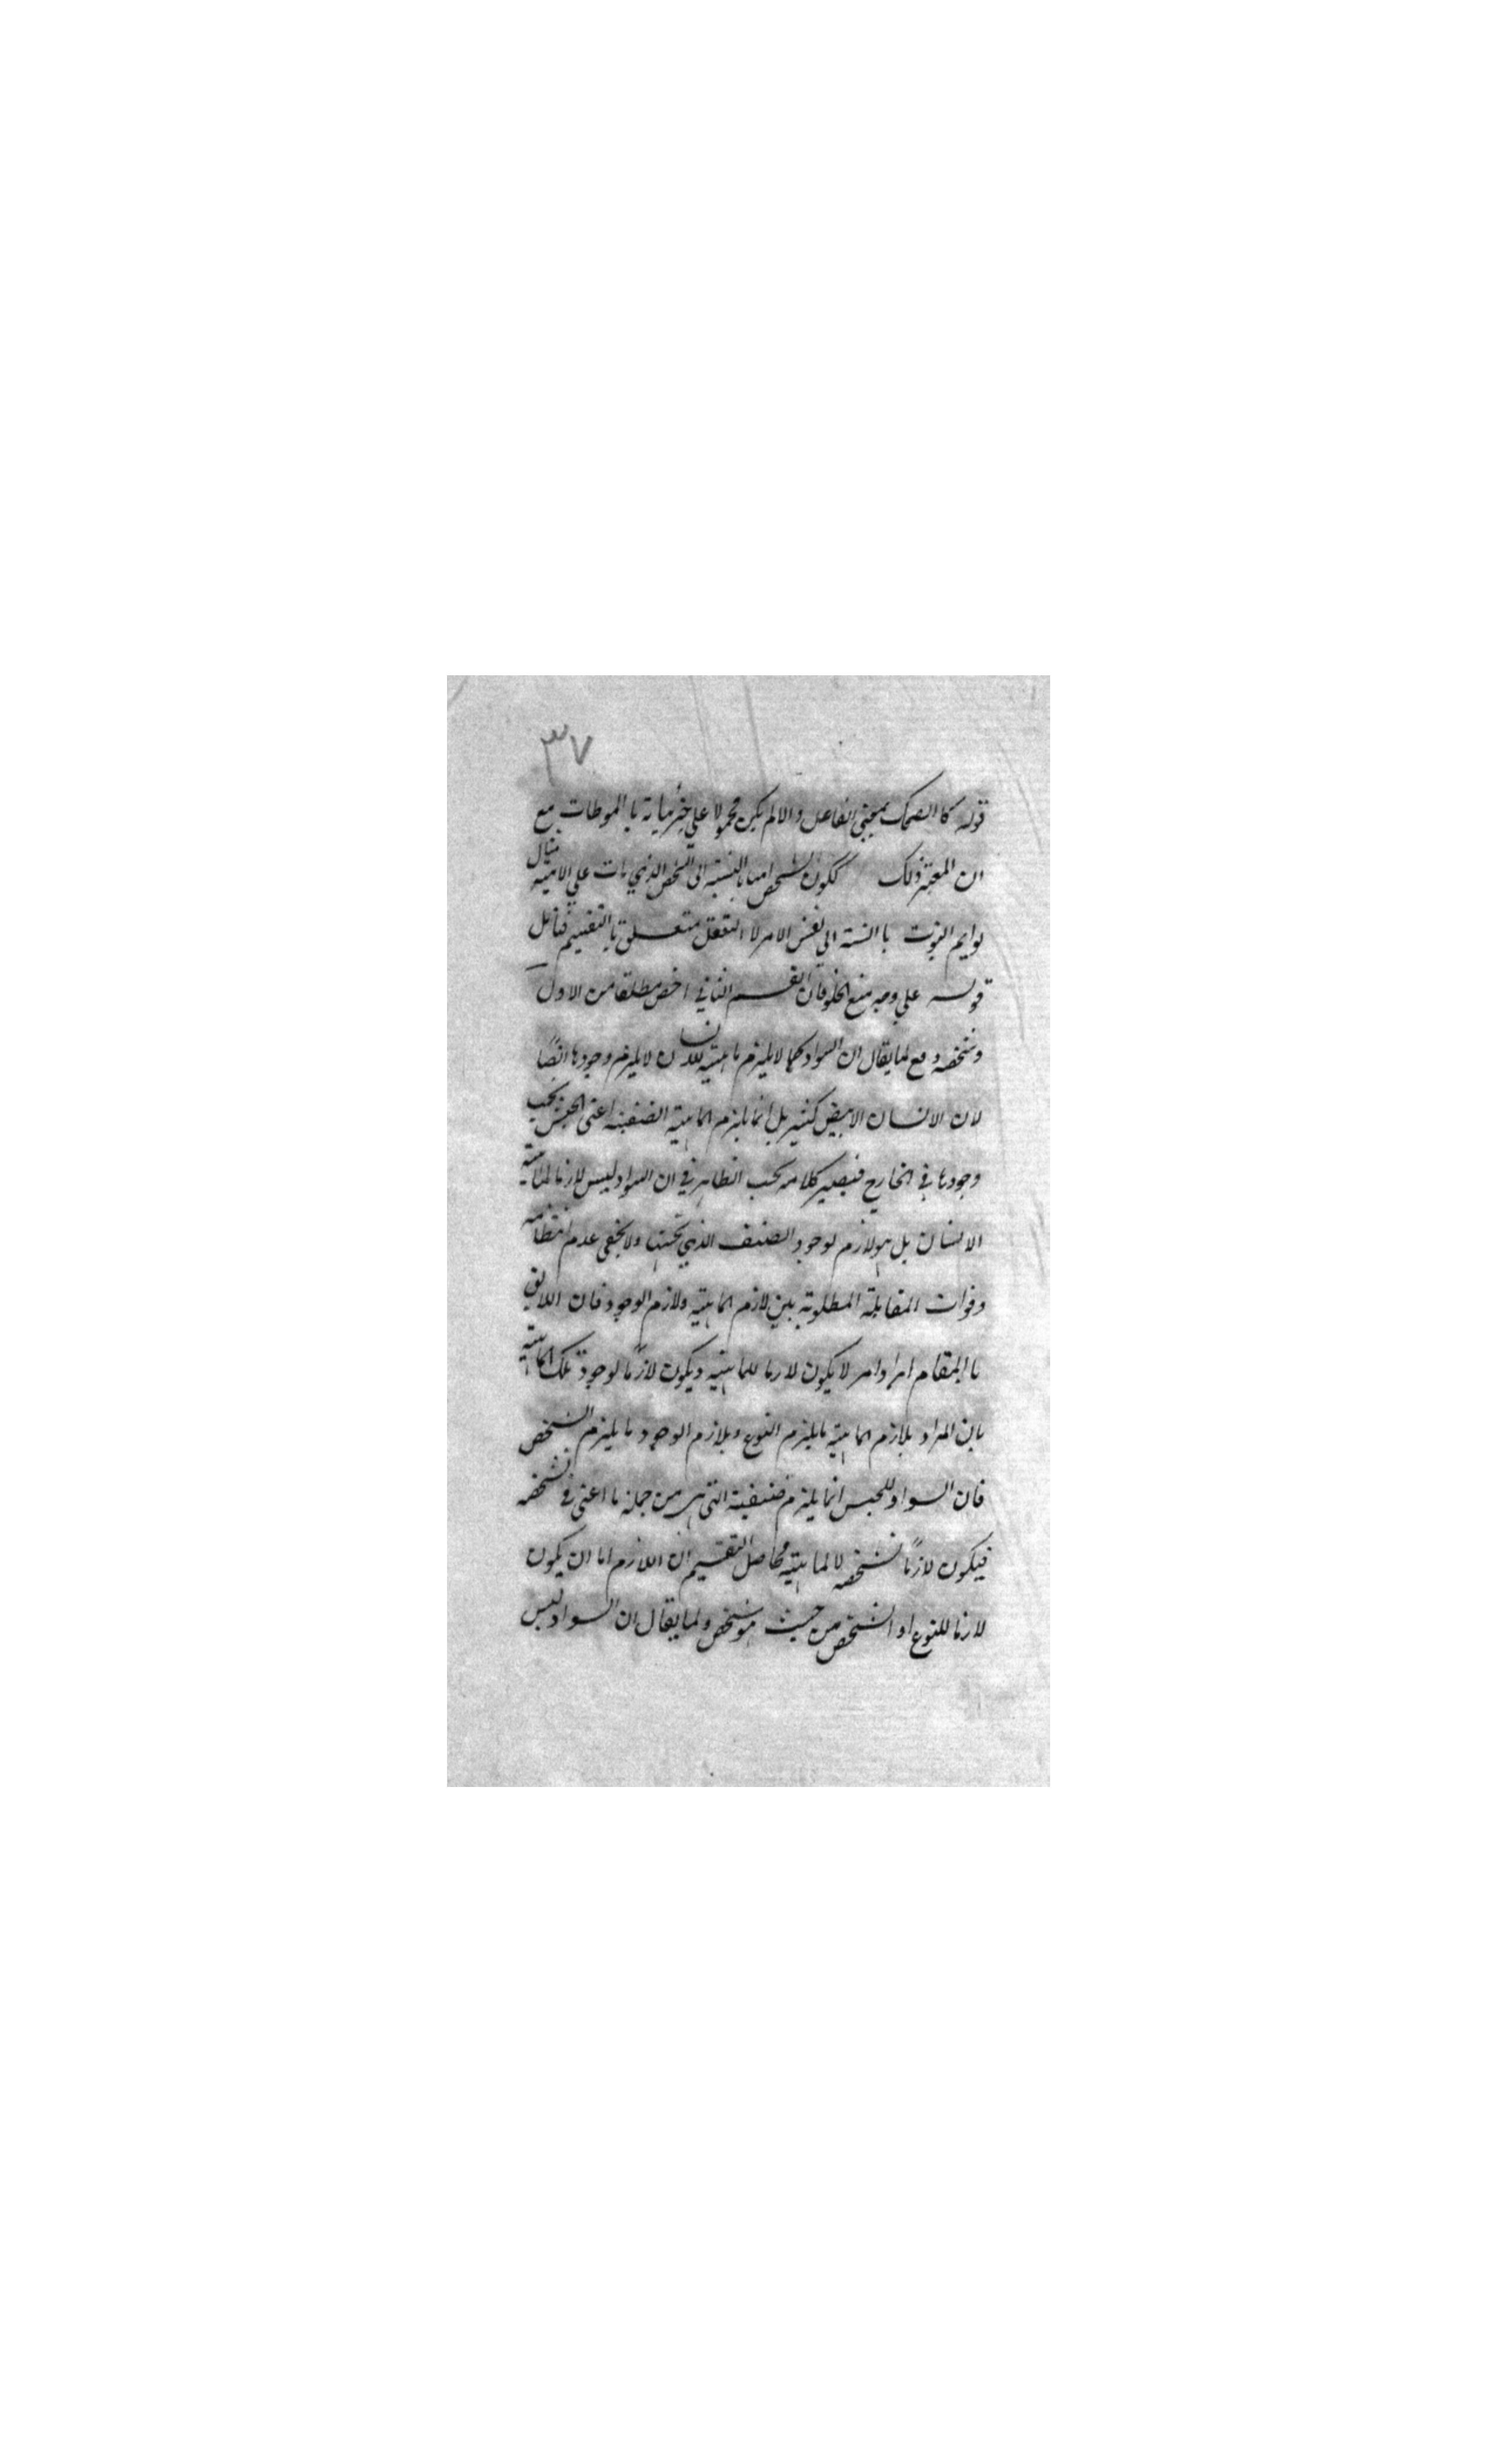 ٣٧
قوله كا الضحك بمعنى الفاعل والا لم يكن محمولا على جزئياته با المو طات مع
ان المعتبر ذلك ككون الشخص اميا بالنسبة الى الشخص الذي مات على الامية مثال
لدايم الثبوت با النسبة الى نفس الامر لا التعقل متعلق با التقسيم فتأمل
قوله على وجه منع الخلو فان القسم الثاني اخص مطلقا من الاول
وشخصه دفع لما يقال ان السواد كما لا يلزم ماهية للانسان لا يلزم وجودها ايضًا
لان الانسان الابيض كثير بل انما يلزم الماهية الصنفية اعنى الحبش بحسب
وجودها في الخارج فيصير كلامه بحسب الظاهر في ان السواد ليس لازما لماهية
الانسان بل هو لازم لوجود الصنف الذي تحتها ولا يخفى عدم انتظامه
وفوات المقابلة المطلوبة بين لازم الماهية ولازم الوجود فان اللايق
با المقام ايراد امر لا يكون لازما للماهية ويكون لازمًا لوجود تلك الماهية
بان المراد بلازم الماهية ما يلزم النوع وبلازم الوجود ما يلزم الشخص
فان السواد للحبس انما يلزم صنفية التى هى من جملة ما اعتبر في تشخصه
فيكون لازمًا لشخصه لا لماهيته فحاصل التقسيم ان اللازم اما ان يكون
لازما للنوع او الشخص من حيث هو شخص ولما يقال ان السواد ليس